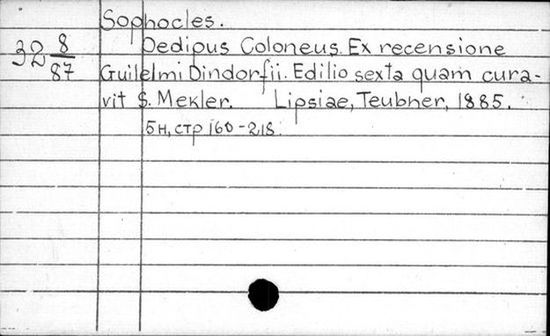 Sophocles.
32 8/87
Oedipus Coloneus. Ex recensione
Guilelmi Dindorfii. Edilio sexta quam cura-
vit S. Mekler. Lipsiae, Teubner, 1885.
5н, стр 160-218.